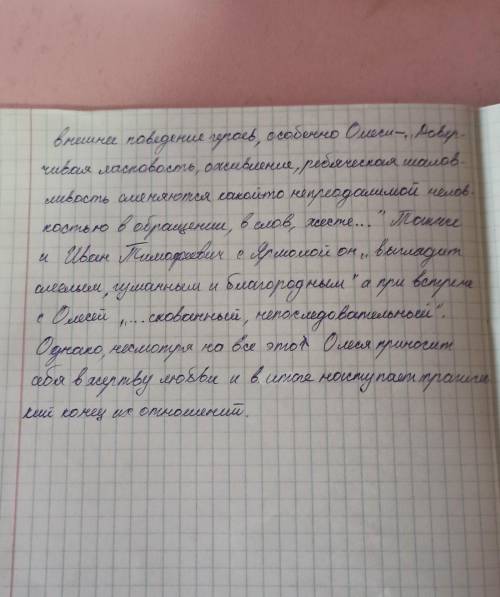 внешнее поведение героев, особенно Олеси – „Довер-
чивая ласковость, оживление, ребяческая шалов-
ливость сменяются какойто непреодалимой нелов-
костью в обращении, в слов, жесте..." Также
и Иван Тимофеевич с Ярмолой он „ выглядит
смелым, гуманным и благородным" а при встрече
с Олесей „...скованный, непоследовательный".
Однако, несмотря на все это Олеся приносит
себя в жертву любви и в итоге наступает трагичес
кий конец их отношений.